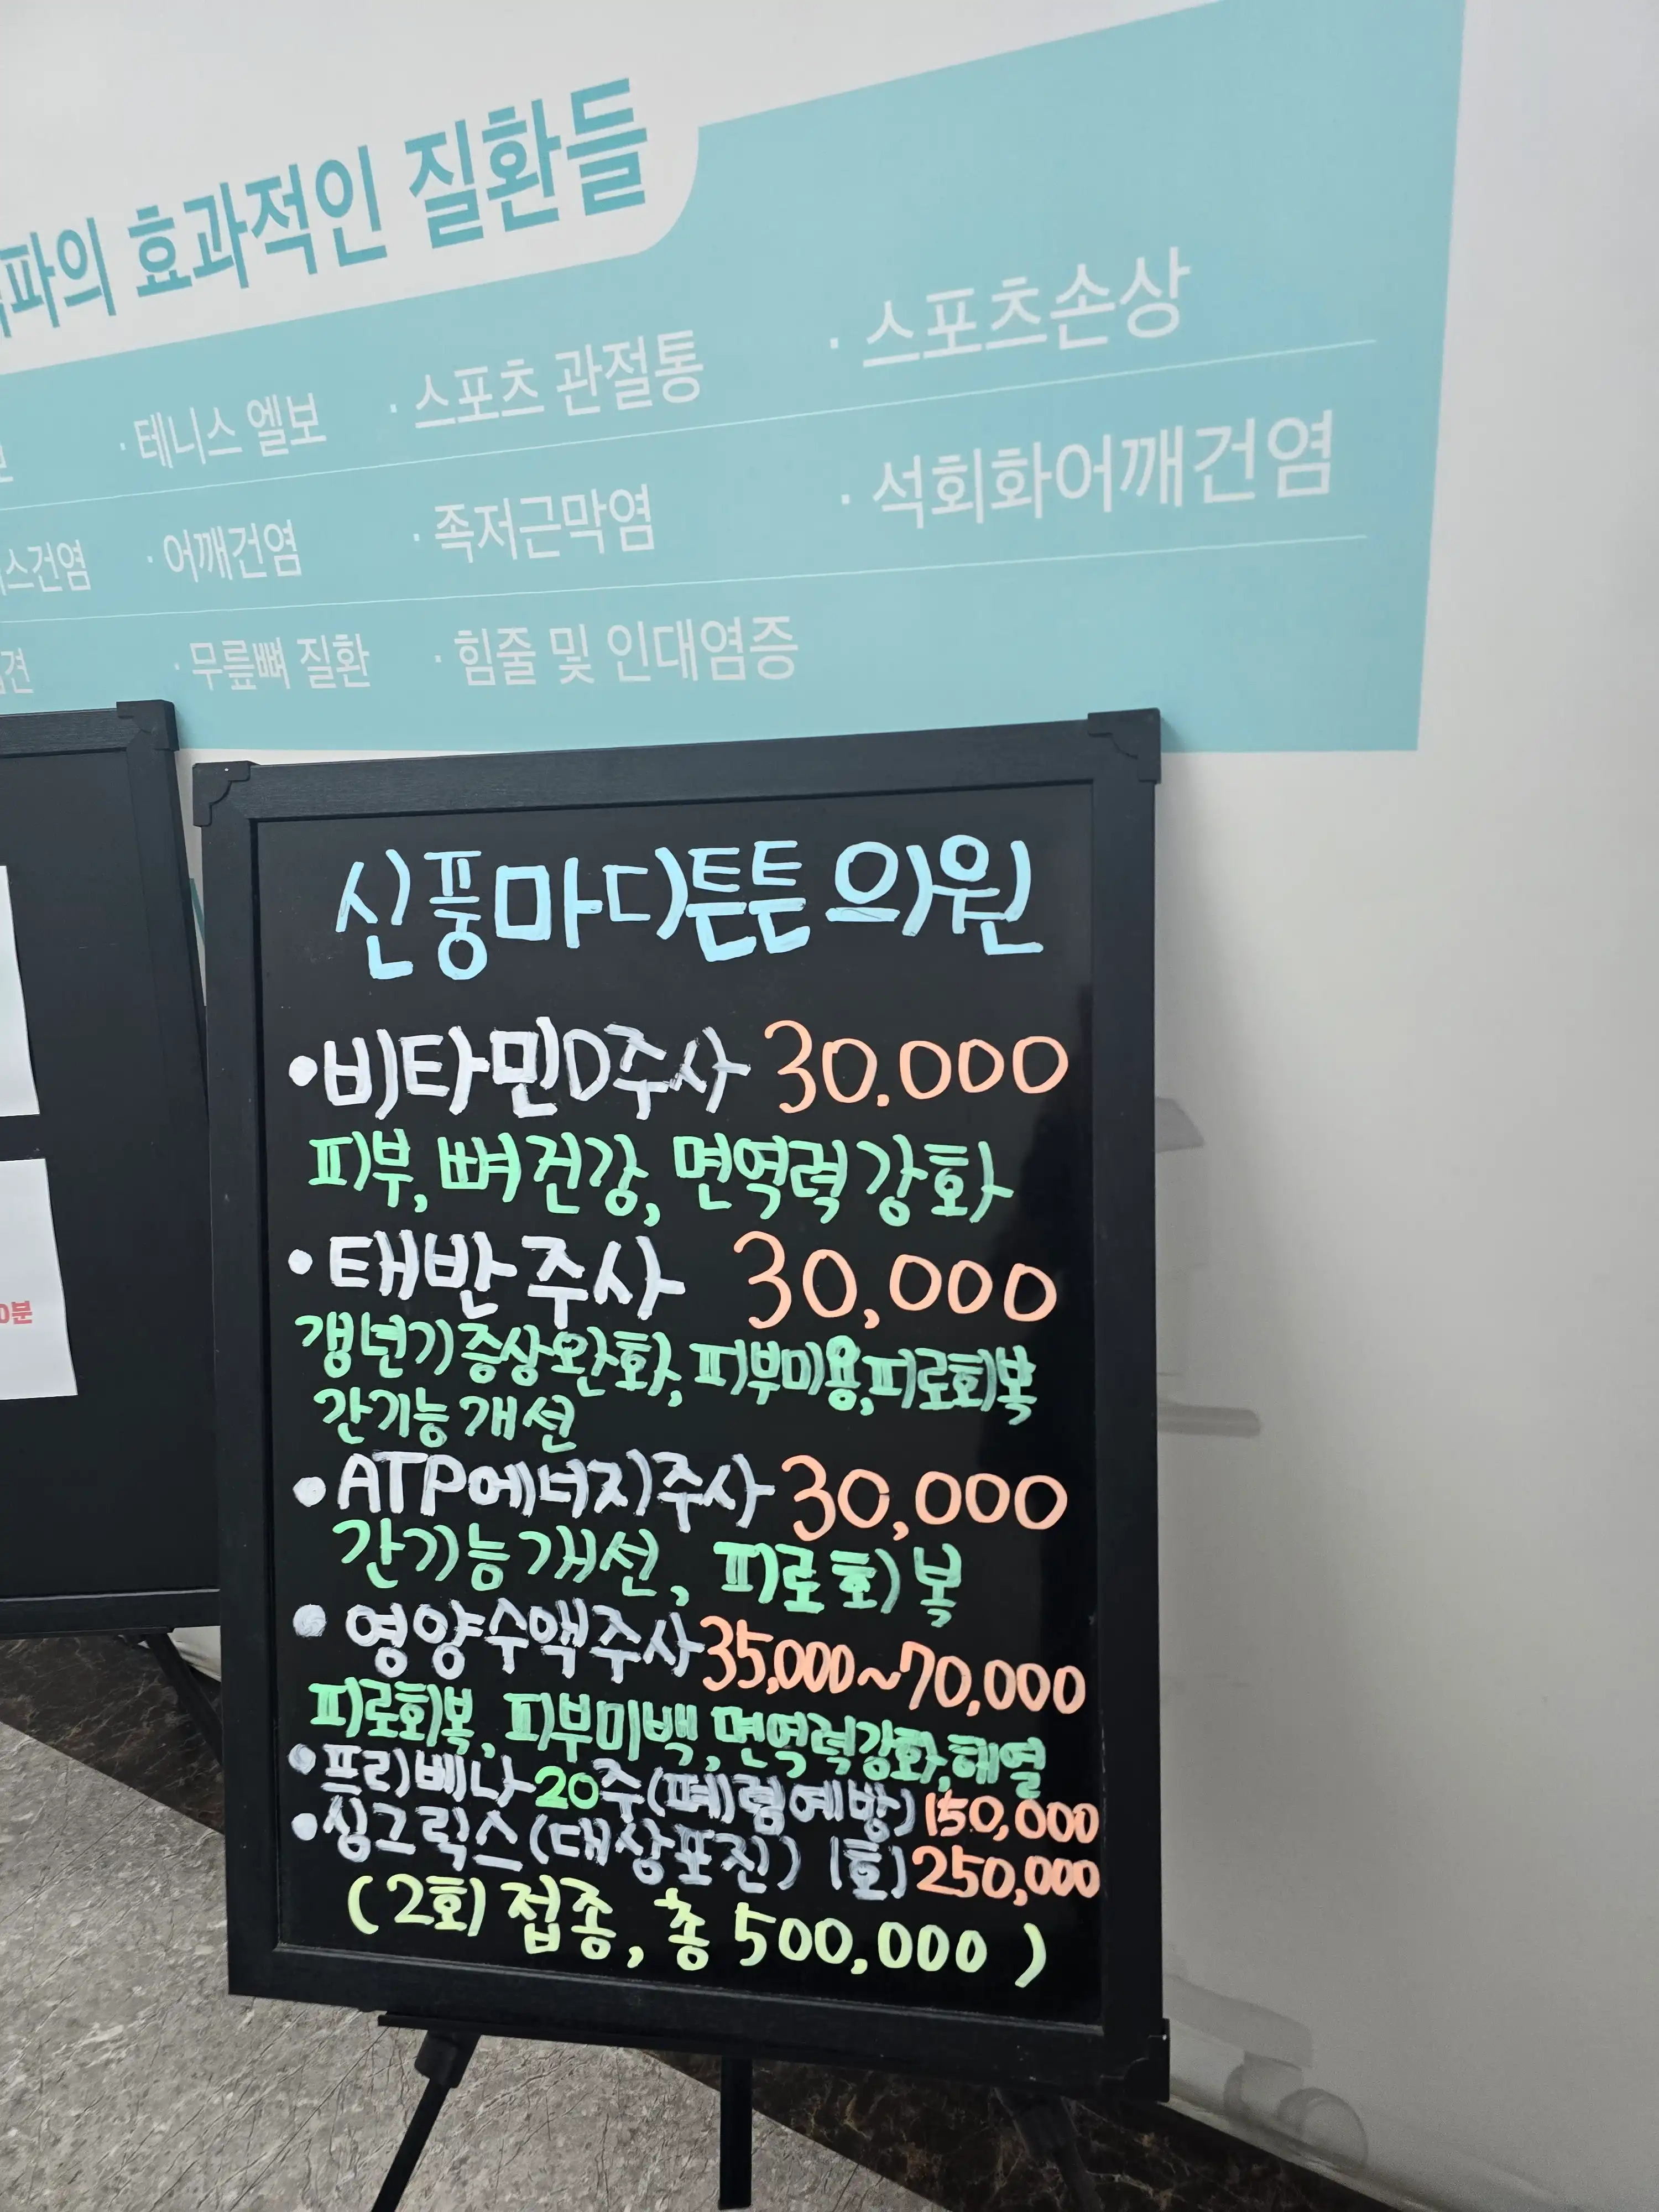 파의 효과적인 질환들
· 테니스 엘보 · 스포츠 관절통 · 스포츠손상
스건염 · 어깨건염 · 족저근막염 · 석회화어깨건염
견 · 무릎뼈 질환 · 힘줄 및 인대염증
0분
신풍마디튼튼의원
•비타민D주사 30.000
피부, 뼈건강, 면역력강화
•태반주사 30,000
갱년기증상완화, 피부미용,피로회복
간기능개선
•ATP에너지주사 30,000
간기능개선, 피로회복
•영양수액주사 35,000~70,000
피로회복, 피부미백, 면역력강화,해열
•프리베나20주(폐렴예방) 150,000
•싱그릭스(대상포진) 1회) 250,000
(2회 접종, 총 500,000)